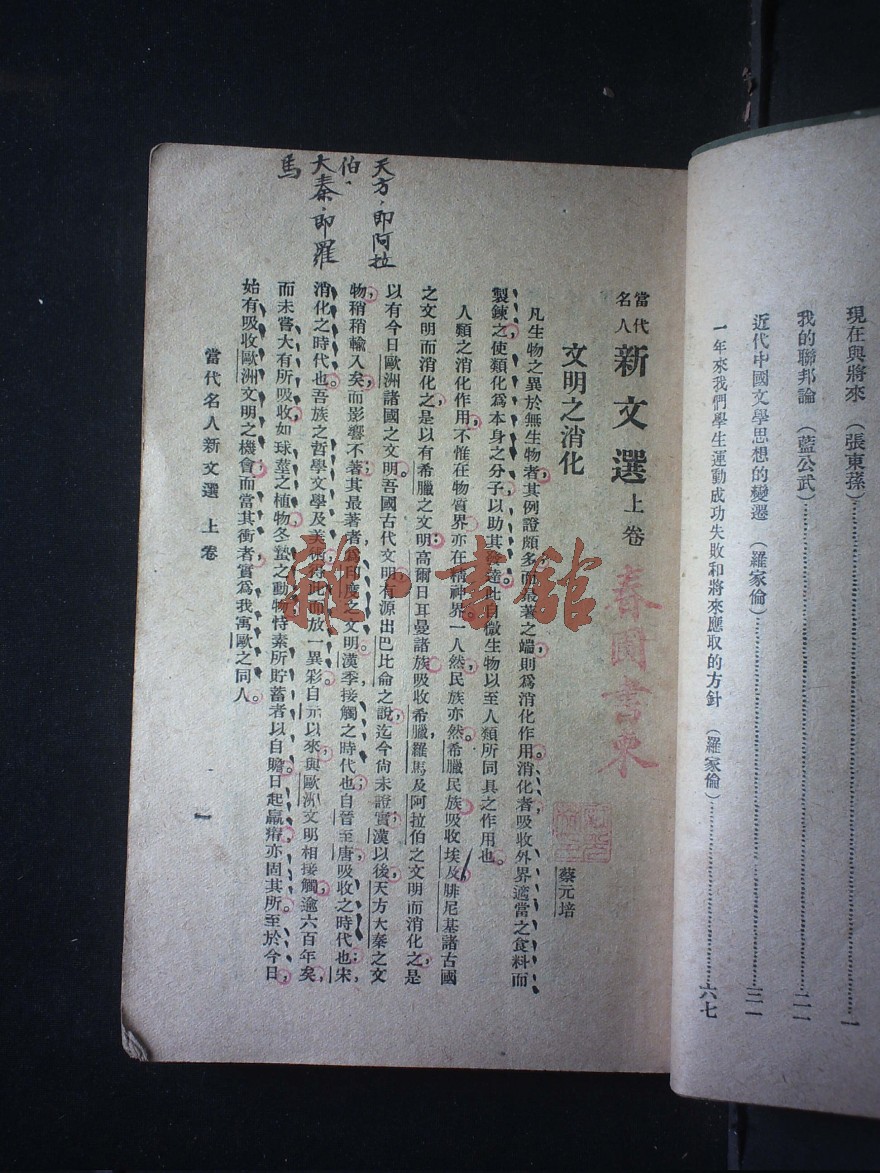 現在與將來（張東蓀）……一
我的聯邦論（藍公武）……二一
近代中國文學思想的變遷（羅家倫）……三一
一年來我們學生運動成功失敗和將來應取的方針（羅家倫）……六七
春圃書
當代名人新文選上卷
文明之消化
蔡元培
凡生物之異於無生物者，其例證頗多，而最著之端，則爲消化作用。消化者，吸收外界適當之食料而
製鍊之，使類化爲本身之分子，以助其發達。此自微生物以至人類所同具之作用也。
人類之消化作用，不惟在物質界，亦在精神界。一人然，民族亦然。希臘民族吸收埃及腓尼基諸古國
之文明而消化之，是以有希臘之文明；高爾日耳曼諸族吸收希臘羅馬及阿拉伯之文明而消化之，是
以有今日歐洲諸國之文明。吾國古代文明，有源出巴比侖之說，迄今尚未證實；漢以後，天方大秦之文
物，稍稍輸入矣，而影響不著；其最著者，爲印度之文明。漢季，接觸之時代也；自晉至唐，吸收之時代也；宋，
消化之時代也。吾族之哲學文學及美術，得此而放一異彩。自元以來，與歐洲文明相接觸，逾六百年矣，
而未嘗大有所吸收，如球莖之植物，冬蟄之動物，恃素所貯蓄者以自贍。日起羸瘠，亦固其所。至於今日，
始有吸收歐洲文明之機會，而當其衝者，實爲我寓歐之同人。
當代名人新文選 上卷
一
天方，即阿拉
伯，
大秦，即羅
馬
雜·書館